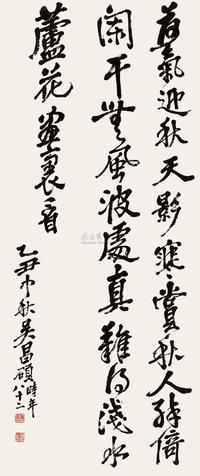 氣迎秋天影寒賞秋人倚
闌干無風波處真難得淺水
蘆花畫裏看
乙丑中秋吳昌碩時年
八十二